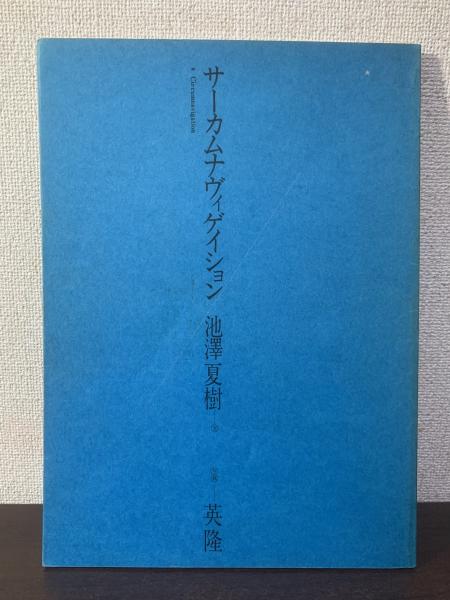 サーカムナヴィゲイション 池澤夏樹 英隆
Circumnavigation